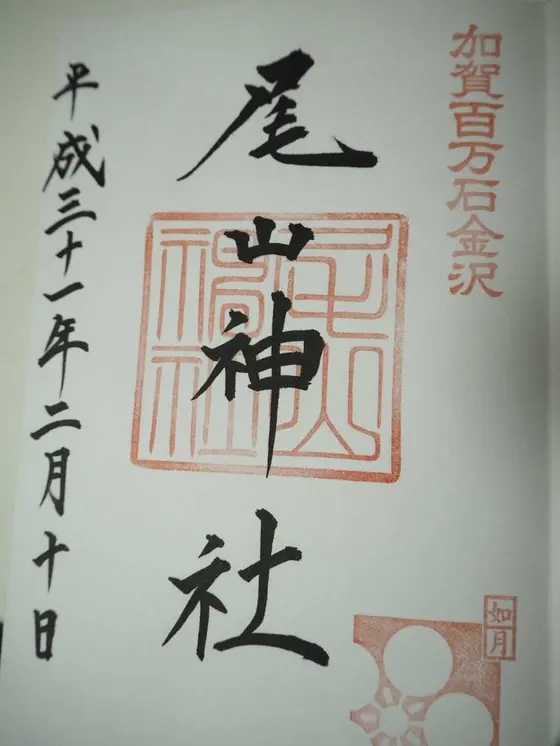 加賀百万石金沢
尾山神社
尾山神社
平成三十一年二月十日
如月